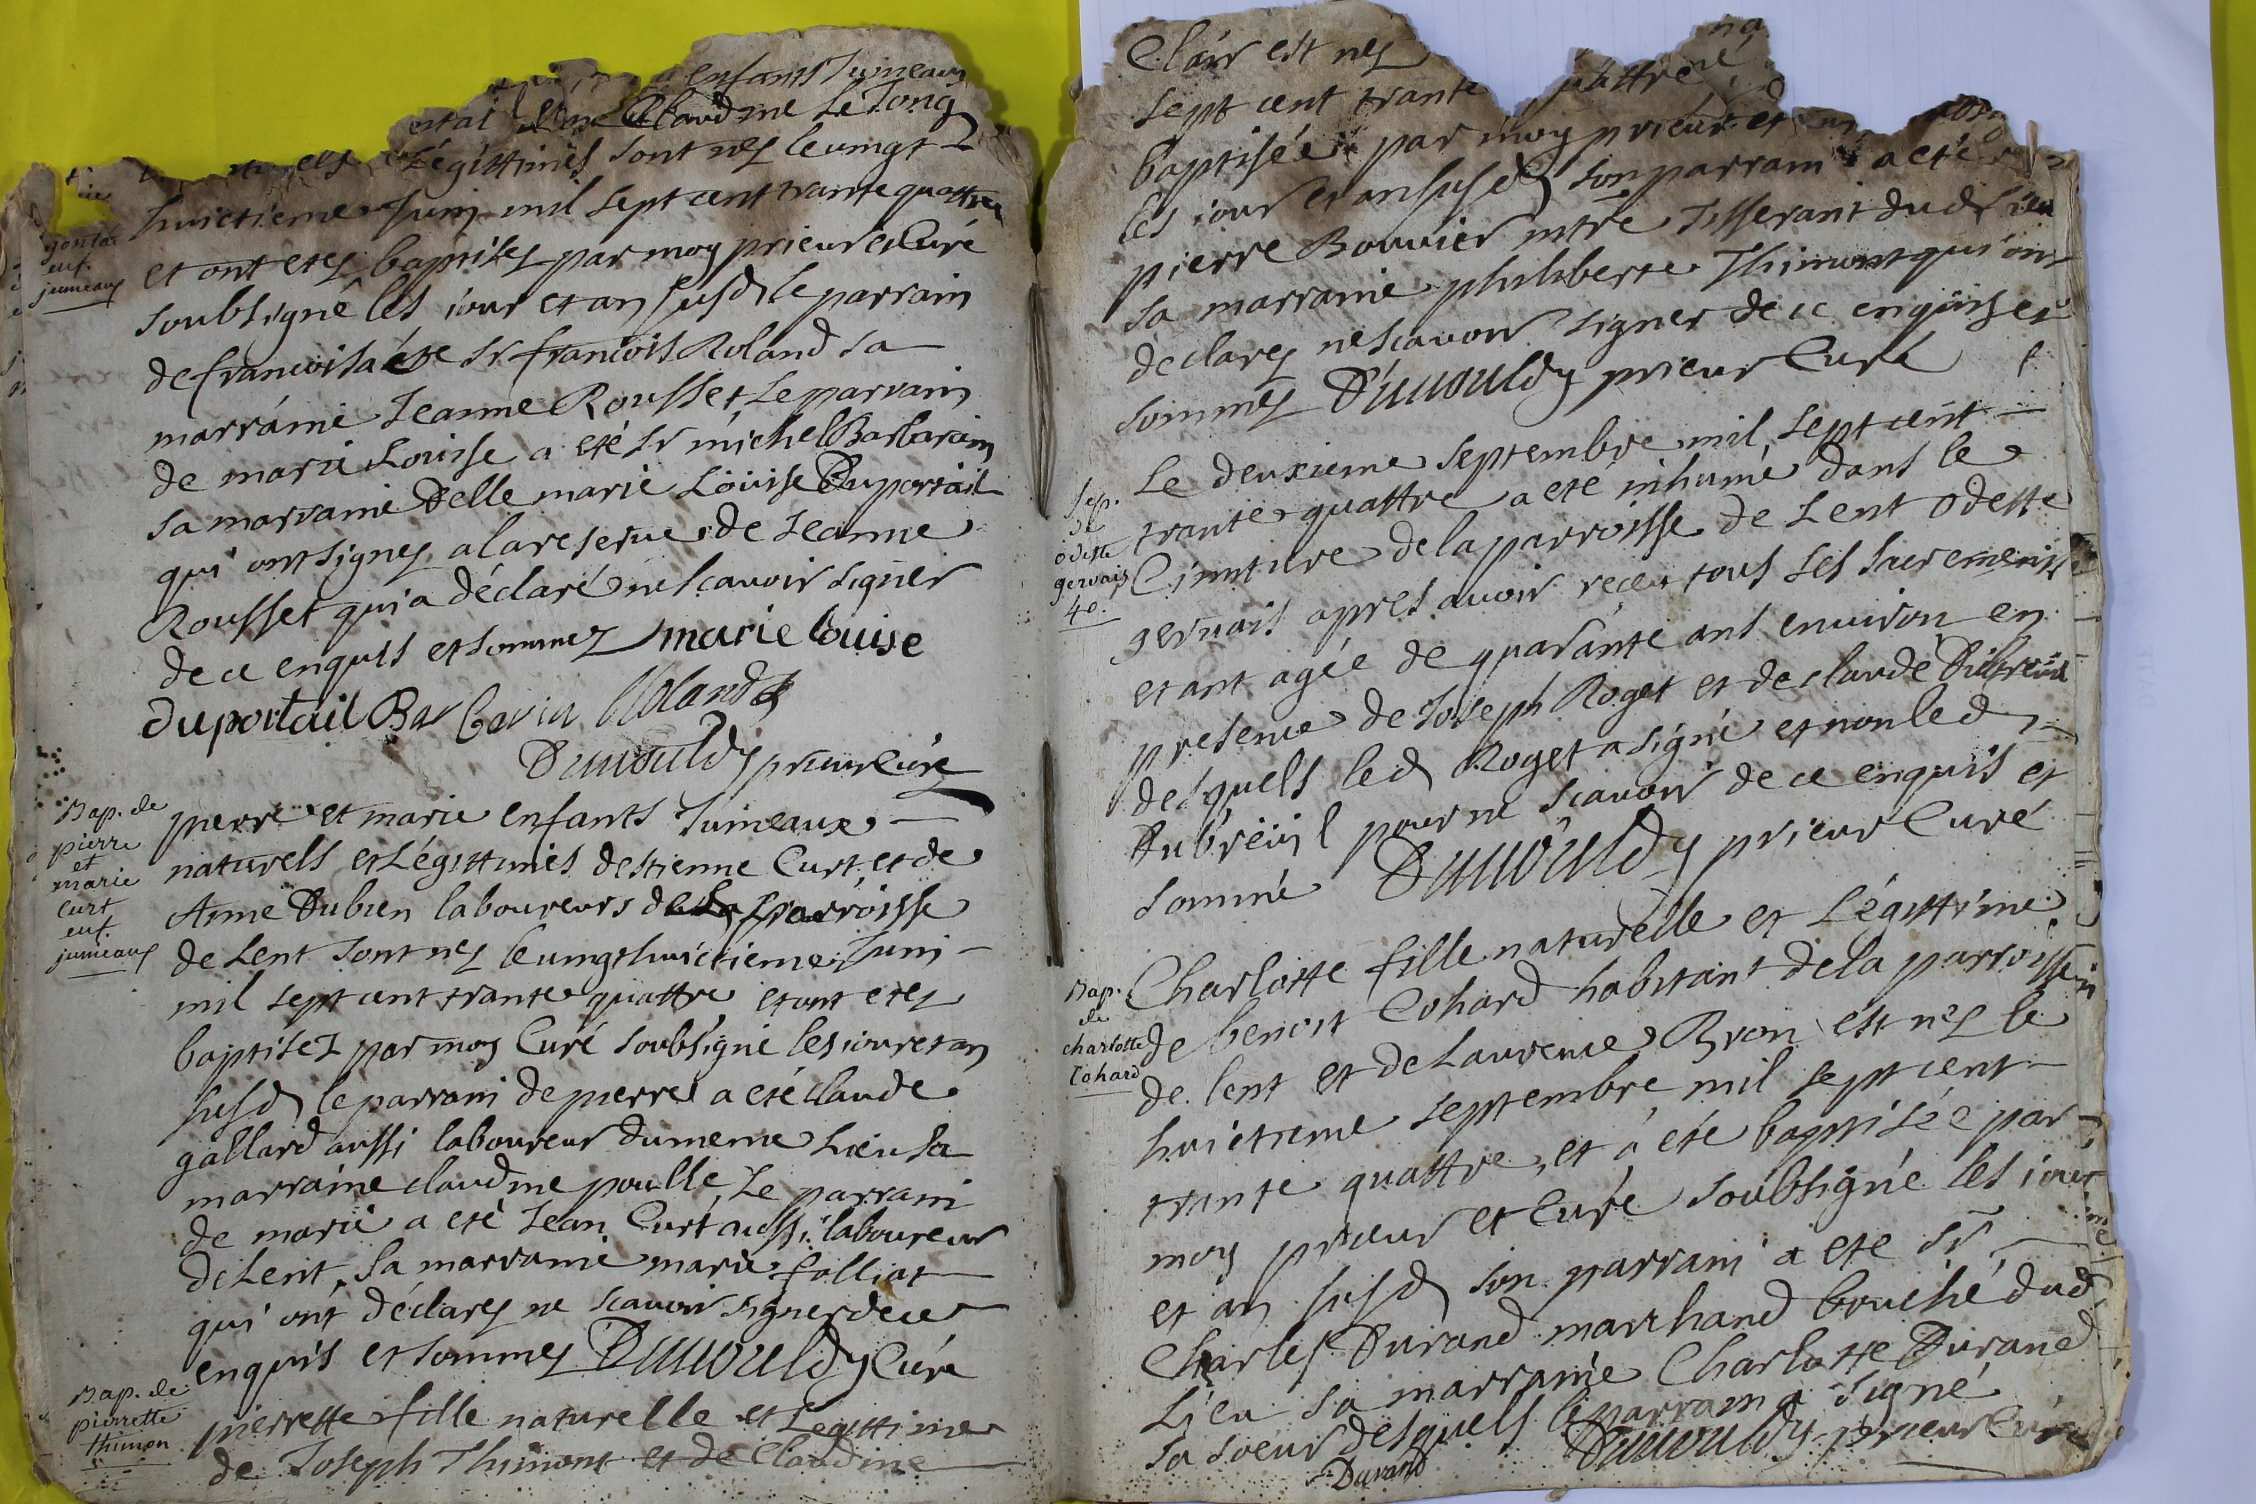 enfants Jumeaux
Claudine Le Jong
Légittimes sont nez le uingt
huictieme Juin mil sept cent trante quattre
et ont etez baptisez par moy prieur et Curé
soubsigné les iour et an susd le parrain
de francois a éte Sr francois Roland sa
marraine Jeanne Rousset Le parrain
de marie Louise a eté Sr michel Barbarin
sa marraine Delle marie Loüise Duportail
qui ont signez a la reserue de Jeanne
Rousset qui a déclaré ne scauoir signer
de ce enquis et sommez marie louise
duportail Barbarin Roland
prieur Curé
jumeaux
Bap. de
pierre
et
marie
Curt
enf.
jumeaux
pierre et marie enfants Jumeaux
naturels et Légittimes d'estienne Curt et de
Anne Dubien laboureurs de la parroisse
de Lent sont nez le uingt huictieme Juin
mil sept cent trante quattre et ont etez
baptisez par moy Curé soubsigné les iour et an
susd le parrain de pierre a eté Claude
gallard aussi laboureur du meme Lieu sa
marraine claudine poulle, Le parrain
de marie a eté Jean Curt aussi laboureur
de Lent, sa marraine marie folliat
qui ont déclarez ne scauoir signer de ce
enquis et sommez Curé
Bap. de
pierrette
thimon
pierrette fille naturelle et Legittime
de Joseph Thimont et de Claudine
Clair est nez
sept cent trante quattre
baptisée par moy prieur et
les iour et an susd son parrain a eté
pierre Bouuier mtre Tisserant dud lieu
sa marraine philiberte Thimont qui ont
declarez ne scauoir signer de ce enquis et
sommez prieur Curé
Sep.
de
odette
geruais
40.
Le deuxieme septembre mil sept cent
trante quattre a eté inhumé dans le
Cimitiere de la parroisse de Lent Odette
geruais apres auoir receu tous les sacrements
etant agée de quarante ans enuiron en
presence de Joseph Roget et de claude Dubreüil
desquels led Roget a signé et non led
Dubreüil pour ne scauoir de ce enquis et
sommé prieur Curé
Bap.
de
charlotte
Cohard
Charlotte fille naturelle et Légittime
de benoit Cohard habitant de la parroisse
de lent et de Laurence Bron est nez le
huictieme septembre mil sept cent
trante quattre, et a eté baptisée par
moy prieur et Curé soubsigné les iour
et an susd son parrain a ete Sr
Charles Durand marchand bouché dud
Lieu sa marraine Charlotte Durand
sa soeur desquels le parrain a signé
Durand prieur Curé